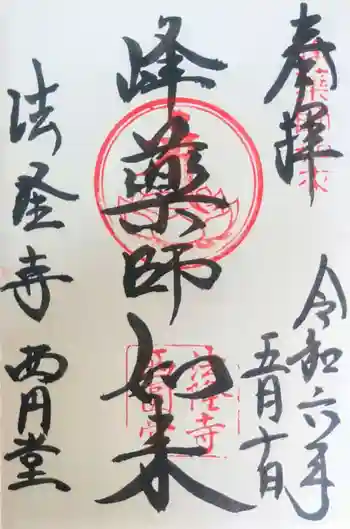 奉拝
令和六年
五月十日
峰藥師如来
法隆寺
西円堂
法隆寺
西圓堂